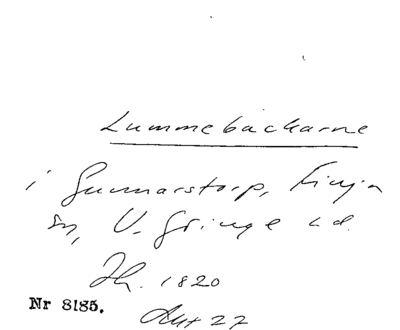 Lummebackarne
i Gunnarstorp, Finja
sn, V. Göinge hd.
Th. 1820
Nr 8185.
Akt 27